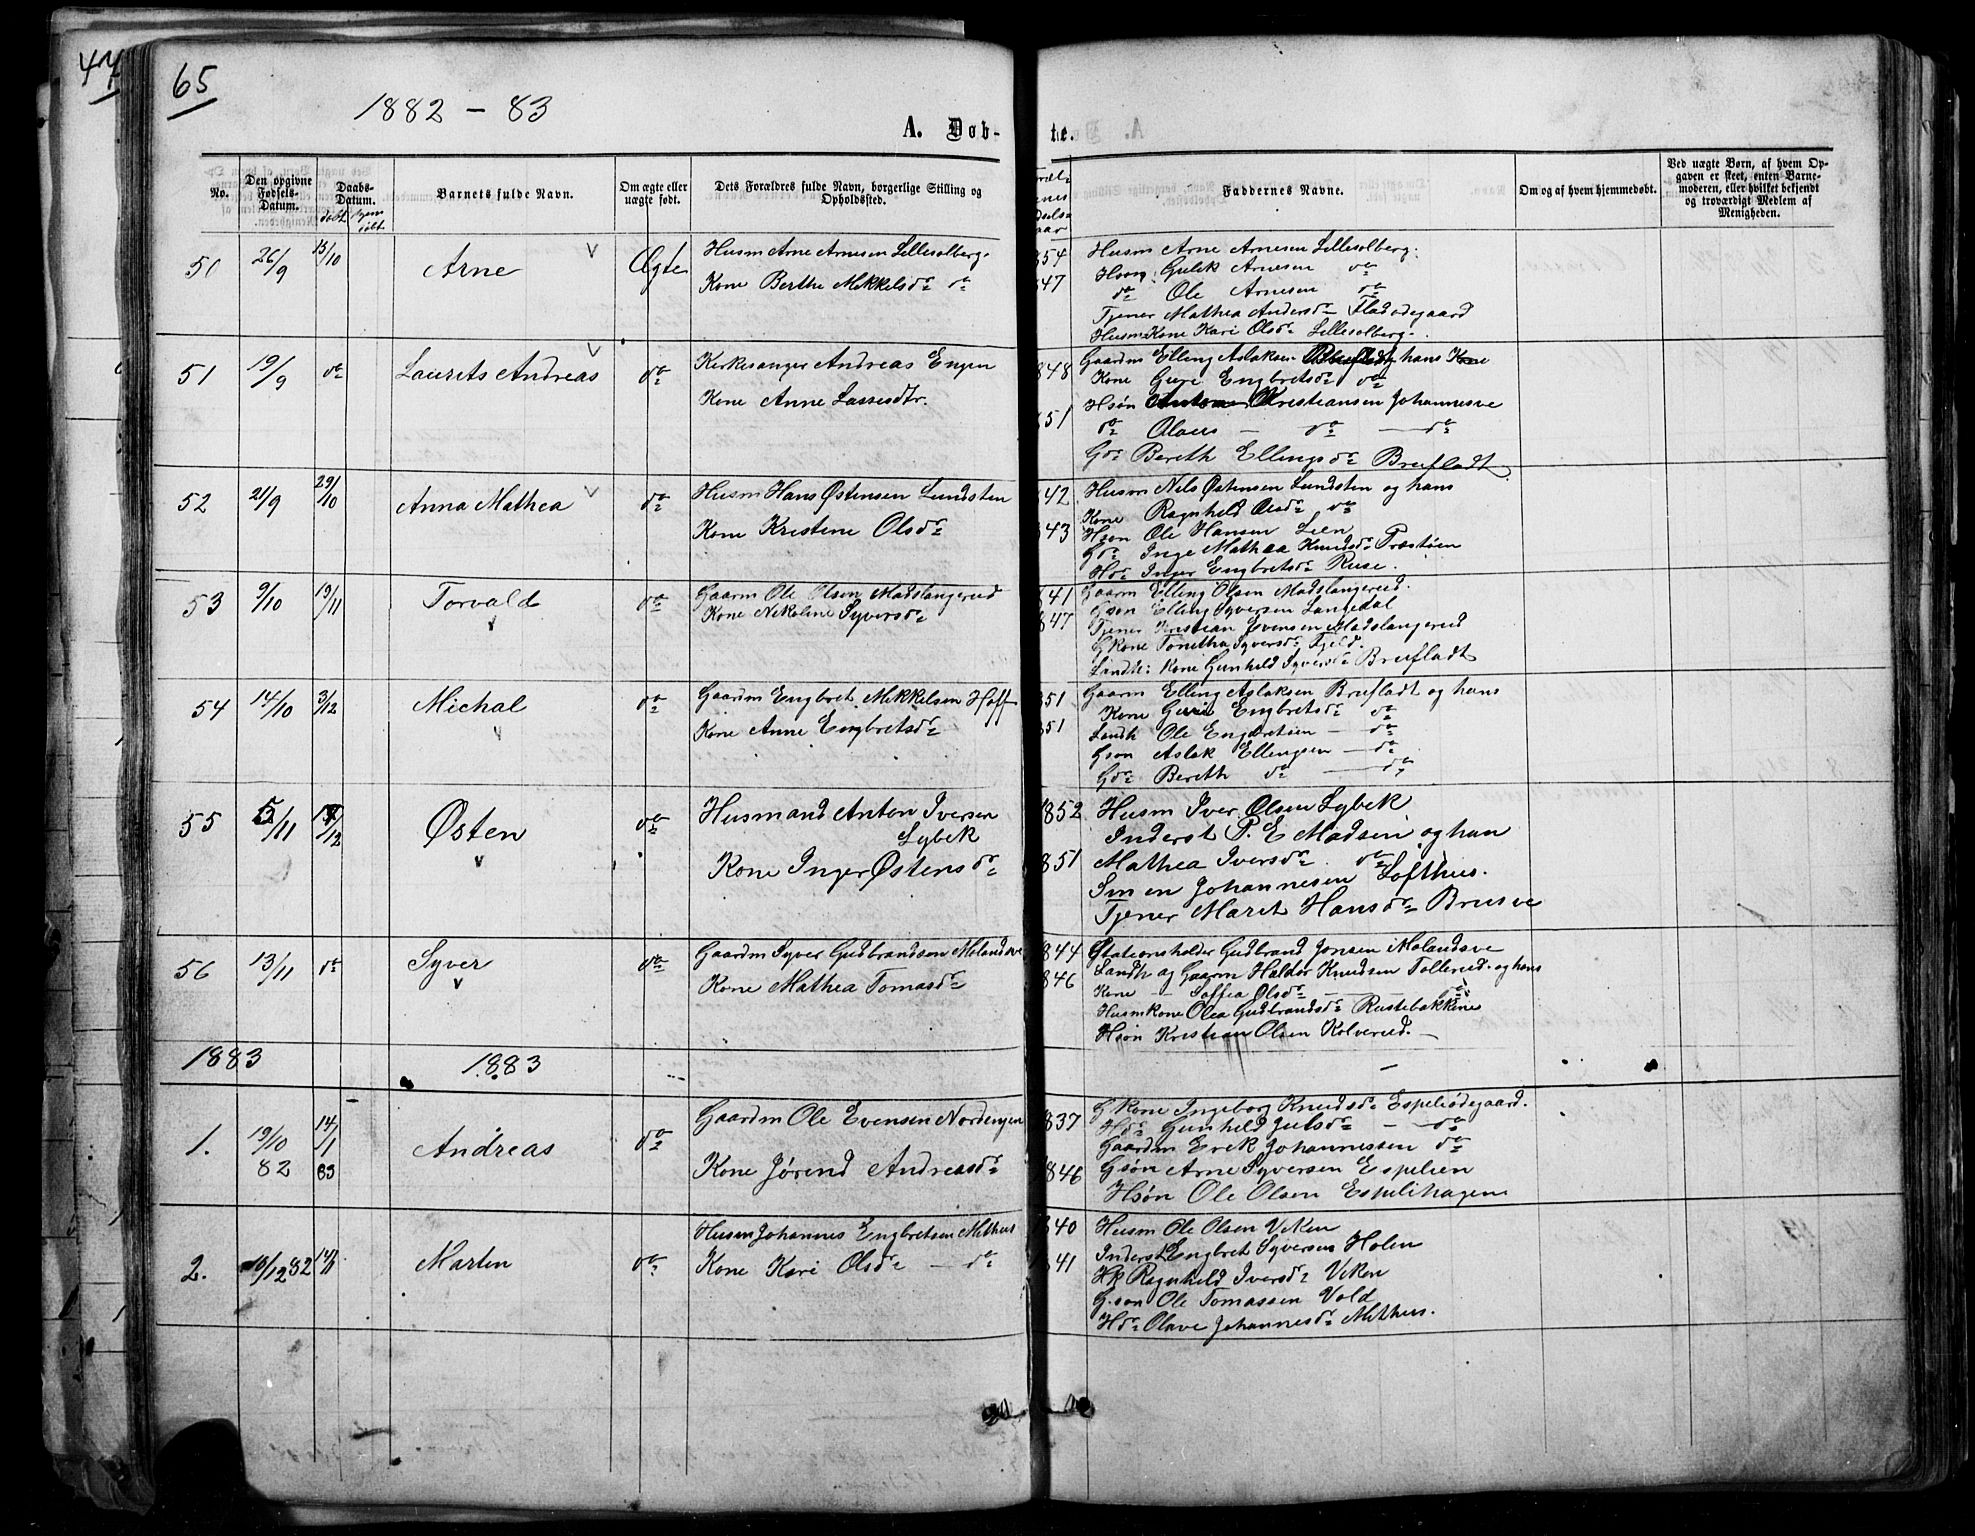 47
65
1882 - 83
A. Døb- te.
No.
Den opgivne Fødsels-Datum.
Daabs-Datum.
døbt hjem døbt
Barnets fulde Navn.
Om ægte eller uægte født.
Dets Forældres fulde Navn, borgerlige Stilling og Opholdssted.
Faddernes Navne.
Om og af hvem hjemmedøbt.
Ved uægte Børn, af hvem Opgaven er skeet, enten Barnemoderen, eller hvilket bekjendt og troværdigt Medlem af Menigheden.
50 26/9 15/10 Arne Ægte
Husm Arne Arnesen Lillesolberg.
Kone Berthe Mikkelsdr do
854
847
Husm Arne Arnesen Lillesolberg.
Gulik Arnesen do
do Ole Arnesen do
Tjener Mathea Andersdr Fladødegaard
Husm Kone Kari Olsdr Lillesolberg.
51 19/9 do Laurits Andreas do
Kirkesanger Andreas Engen
Kone Anne Lassesdtr.
848
851
Gaardm Elling Aslaksen Brufladt hans Kone
Kone Guri Engbretsdr do
Hsøn Kristiansen Johannesve
do Olaus — do — do
Gdr Bereth Ellingsdr Brufladt
52 21/9 29/10 Anna Mathea do
Husm Hans Østensen Lundsten
Kone Kristene Olsdr
42
43
Husm Nils Østensen Lundsten og hans
Kone Ragnhild Olsdr do
Hsøn Ole Hansen Lien
Gdr Inge Mathea Knudsdr Præstøien
Hdr Inger Engbretsdr Ruse.
53 9/10 19/11 Torvald do
Gaarm Ole Olsen Madslangerud
Kone Nikoline Syversdr
41
847
Gaarm Elling Olsen Madslangerud.
Gsøn Elling Syversen Langedal
Tjener Kristian Evensen Madslangerud
Gkone Tonetha Syversdr Fjeld.
Landh: Kone Gunhild Syversdr Brufladt
54 14/10 3/12 Michal do
Gaardm Engbret Mikkelsen Hoff
Kone Anne Engbretsdr
851
851
Gaarm Elling Aslaksen Brufladt og hans
Kone Guri Engbretsdr do
Landh Ole Engbretsen — do
Gsøn Aslak Ellingsen — do
Gdr Bereth do — do
55 5/11 /12 Østen do
Husmand Anton Iversen
Lybek
Kone Inger Østensdr
1852
851
Husm Iver Olsen Lybek
Inderst P. E Madsen og han
Mathea Iversdr do
Simen Johannesen Lofthus.
Tjener Marit Hansdr Brusve
56 13/11 do Syver do
Gaardm Syver Gudbrandsen Molandsve
Kone Mathea Tomasdr
844
846
Stationsholder Gudbrand Jonsen Molandsve
Landh og Gaarm Haldor Knudsen Tollerud og hans
Kone — Soffia Olsdr — do
Husmkone Olea Gudbrandsdr Rustebakkene
Hsøn Kristian Olsen Kolverud. —
1883 1883
1. 19/10 82 14/1 83 Andreas do
Gaardm Ole Evensen Nordengen
Kone Jørend Andreasdr
837
1846
Gkone Ingeborg Knudsdr Espeliødegaard.
Hdr Gunhild Julsdr — do
Gaardm Erik Johannessen do
Gsøn Arne Syversen Espelien
Hsøn Ole Olsen Espelihagen
2. 10/12 82 14/1 Marten do
Husm Johannes Engbretsen Mithus
Kone Kari Olsdr — do
1840
841
Husm Ole Olsen Viken
Inderst Engbret Syversen Holen
Hk Ragnhild Iversdr Viken
G.søn Ole Tomassen Vold
Hdr Olave Johannesdr Mithus.